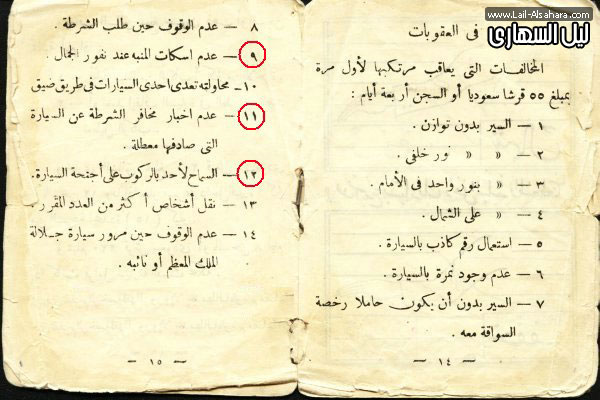 www.Lail-Alsahara.com
ليل السهارى
فى العقوبات
المخالفات التى يعاقب مرتكبها لأول مرة
بمبلغ ٥٥ قرشا سعوديا أو السجن أربعة أيام :
١ — السير بدون توازن .
٢ — » » نور خلفى .
٣ — » بنور واحد فى الأمام .
٤ — » على الشمال .
٥ — استعمال رقم كاذب بالسيارة .
٦ — عدم وجود نمرة بالسيارة .
٧ — السير بدون أن يكون حاملا رخصة
السواقة معه .
— ١٤ —
٨ — عدم الوقوف حين طلب الشرطة .
٩ — عدم اسكات المنبه عند نفور الجمال .
١٠ — محاولته تعدى احدى السيارات فى طريق ضيق
١١ — عدم اخبار مخافر الشرطة عن السيارة
التى صادفها معطلة .
١٢ — السماح لأحد بالركوب على أجنحة السيارة .
١٣ — نقل أشخاص أكثر من العدد المقرر .
١٤ — عدم الوقوف حين مرور سيارة جلالة
الملك المعظم أو نائبه .
— ١٥ —